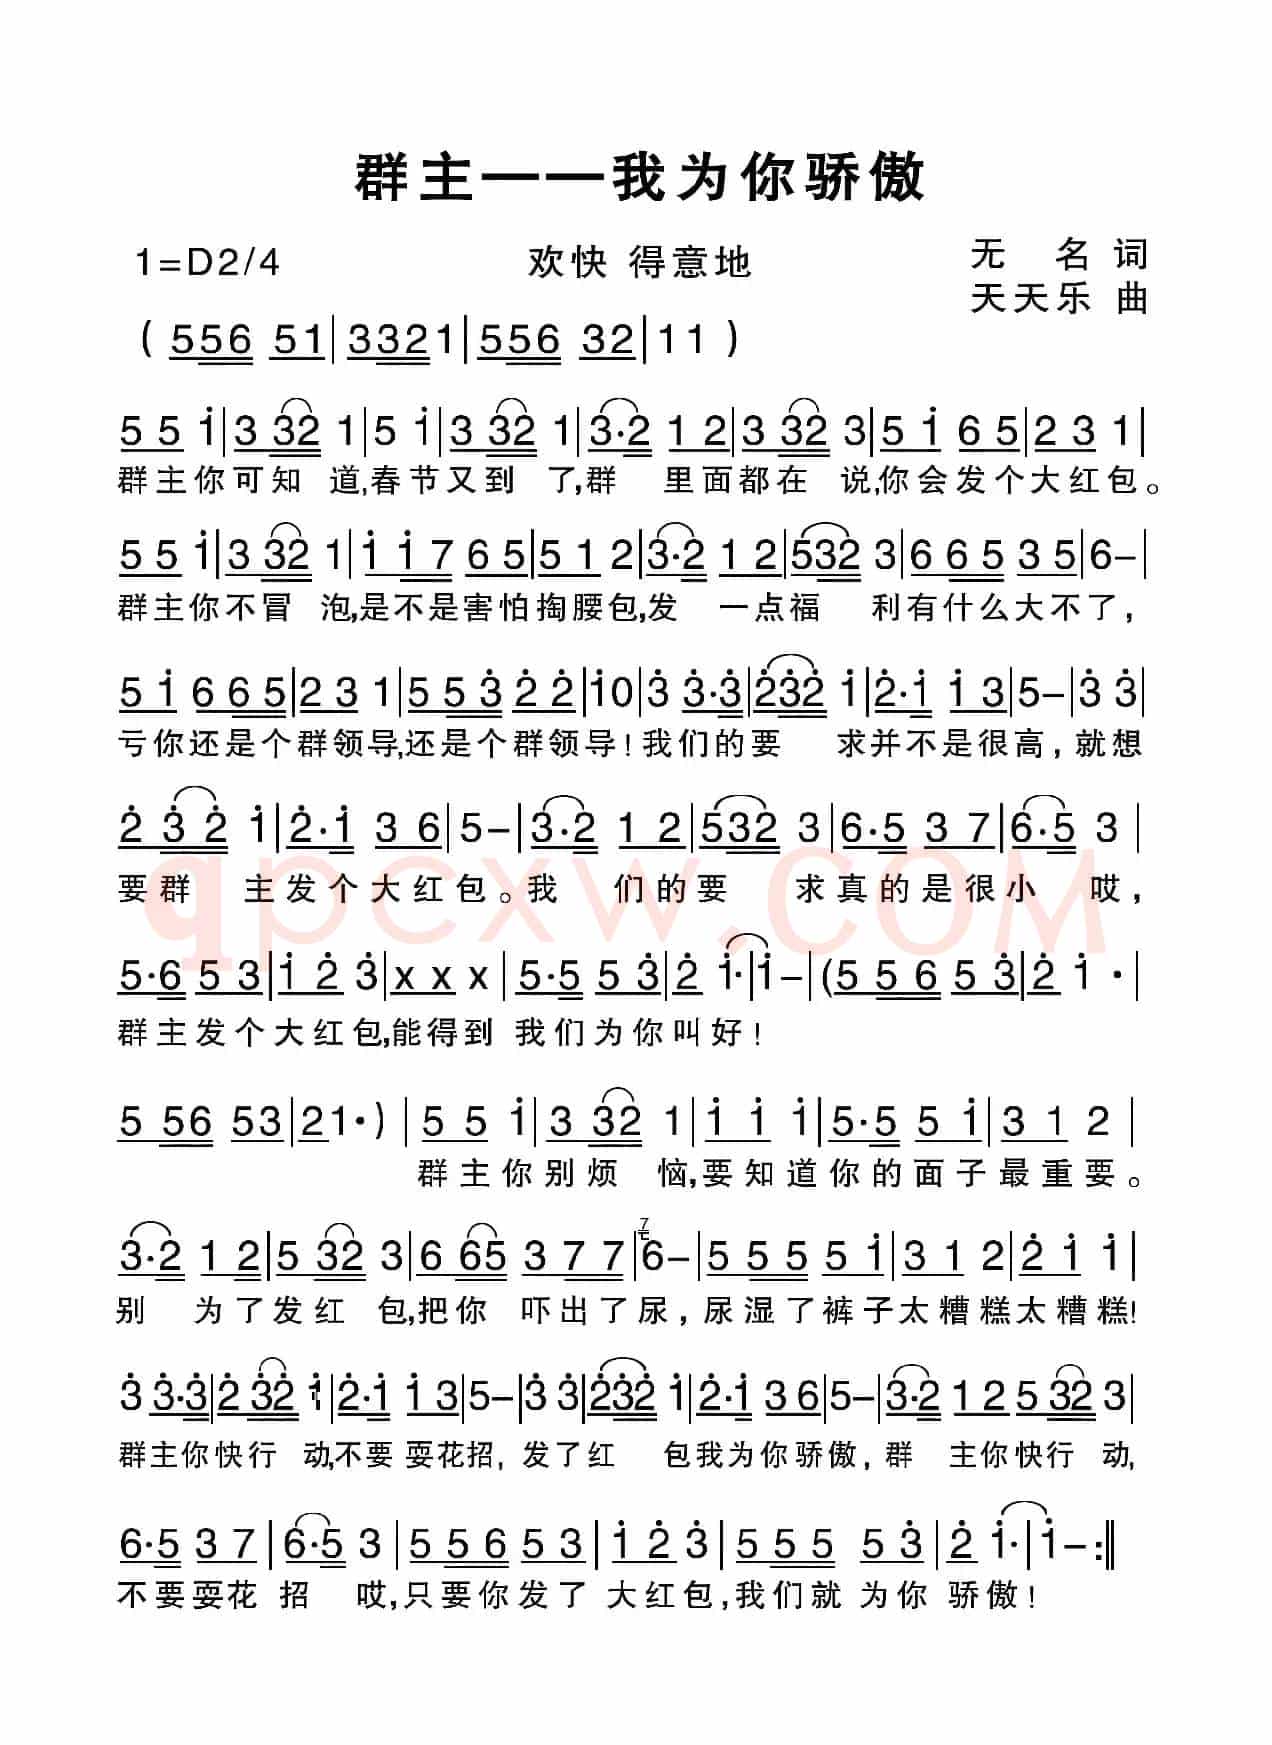 群主——我为你骄傲
1=D2/4 欢快 得意地 无 名 词
天天乐 曲
( 556 51|3321|556 32|11 )
5 5 i|3 32 1|5 i|3 32 1|3·2 1 2|3 32 3|5 i 6 5|2 3 1|
群主你可知 道,春节又到 了,群 里面都在 说,你会发个大红包。
5 5 i|3 32 1|i i 7 6 5|5 1 2|3·2 1 2|532 3|6 6 5 3 5|6-|
群主你不冒 泡,是不是害怕掏腰包,发 一点福 利有什么大不了,
5 i 6 6 5|2 3 1|5 5 3̇ 2̇ 2̇|i0|3̇ 3̇·3̇|2̇3̇2̇ i|2̇·i i 3|5-|3̇ 3̇|
亏你还是个群领导,还是个群领导!我们的要 求并不是很高,就想
2̇ 3̇ 2̇ i|2̇·i 3 6|5-|3·2 1 2|532 3|6·5 3 7|6·5 3|
要群 主发个大红包。我 们的要 求真的是很小 哎,
qpcxw.COM
5·6 5 3|i 2̇ 3̇|x x x|5·5 5 3̇|2̇ i·|i-|(5 5 6 5 3̇|2̇ i·|
群主发个大红包,能得到 我们为你叫好!
5 56 53|21·)|5 5 i|3 32 1|i i i|5·5 5 i|3 1 2|
群主你别烦 恼,要知道你的面子最重要。
3·2 1 2|5 32 3|6 65 3 7 7|7 6-|5 5 5 5 i|3 1 2|2̇ i i|
别 为了发红 包,把你 吓出了尿,尿湿了裤子太糟糕太糟糕!
3̇ 3̇·3̇|2̇ 3̇2̇ i|2̇·i i 3|5-|3̇ 3̇|2̇3̇2̇ i|2̇·i 3 6|5-|3·2 1 2|5 32 3|
群主你快行 动,不要 耍花招,发了红 包我为你骄傲,群 主你快行 动,
6·5 3 7|6·5 3|5 5 6 5 3|i 2̇ 3̇|5 5 5 5 3̇|2̇ i·|i-:‖
不要耍花 招 哎,只要你发了 大红包,我们就 为你 骄傲!